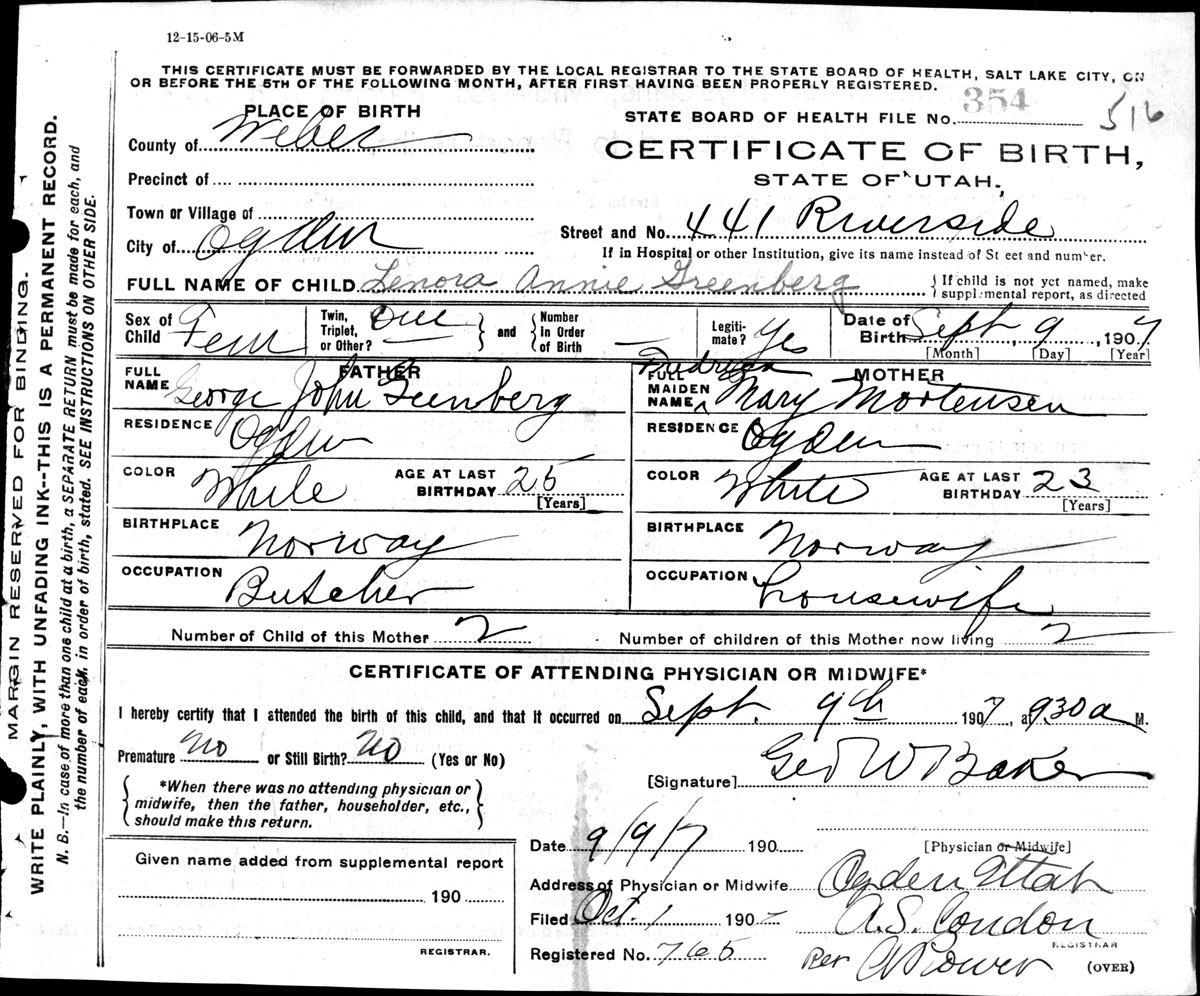 12-15-06-5M
THIS CERTIFICATE MUST BE FORWARDED BY THE LOCAL REGISTRAR TO THE STATE BOARD OF HEALTH, SALT LAKE CITY, ON
OR BEFORE THE 5TH OF THE FOLLOWING MONTH, AFTER FIRST HAVING BEEN PROPERLY REGISTERED.
PLACE OF BIRTH
STATE BOARD OF HEALTH FILE No. 354 516
County of Weber
CERTIFICATE OF BIRTH,
STATE OF UTAH.
Precinct of
Town or Village of
City of Ogden
Street and No. 441 Riverside
If in Hospital or other Institution, give its name instead of St eet and number.
FULL NAME OF CHILD Lenora Annie Greenberg
If child is not yet named, make
supplemental report, as directed
Sex of Child Fem
Twin, Triplet, or Other? One
and Number In Order of Birth —
Legitimate? Yes
Date of Birth Sept 9, 1907
[Month] [Day] [Year]
FATHER
FULL NAME George John Geenberg
RESIDENCE Ogden
COLOR White
AGE AT LAST BIRTHDAY 25
[Years]
BIRTHPLACE Norway
OCCUPATION Butcher
MOTHER
FULL MAIDEN NAME Mary Mortensen
RESIDENCE Ogden
COLOR White
AGE AT LAST BIRTHDAY 23
[Years]
BIRTHPLACE Norway
OCCUPATION Housewife
Number of Child of this Mother 2
Number of children of this Mother now living 2
CERTIFICATE OF ATTENDING PHYSICIAN OR MIDWIFE*
I hereby certify that I attended the birth of this child, and that it occurred on Sept. 9th 1907, at 930 a M.
Premature No or Still Birth? No (Yes or No)
[Signature] Geo W Baker
*When there was no attending physician or
midwife, then the father, householder, etc.,
should make this return.
[Physician or Midwife]
Date 9/9/7 190
Given name added from supplemental report
190
REGISTRAR.
Address of Physician or Midwife Ogden Utah
Filed Oct. 1 1907 A.S. Condon
REGISTRAR
Registered No. 765 Per
(OVER)
MARGIN RESERVED FOR BINDING.
WRITE PLAINLY, WITH UNFADING INK--THIS IS A PERMANENT RECORD.
N. B.—In case of more than one child at a birth, a SEPARATE RETURN must be made for each, and
the number of each, in order of birth, stated. SEE INSTRUCTIONS ON OTHER SIDE.